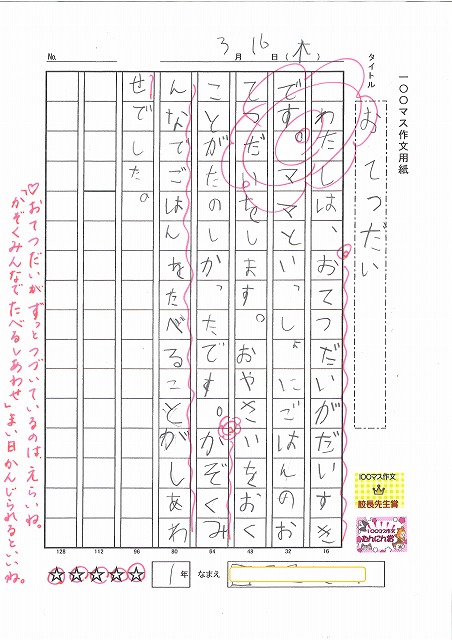 一〇〇マス作文用紙
タイトル
おてつだい
No.
3月16日(木)
わたしは、おてつだいがだいすき
です。ママといっしょにごはんのお
てつだいをします。おやさいをおく
ことがたのしかったです。かぞくみ
んなでごはんをたべることがしあわ
せでした。
♡おてつだいが ずっとつづいているのは えらいね。
「かぞくみんなで たべるしあわせ」 まい日かんじられるといいね。
100マス作文
校長先生賞
100マス作文
たんにん賞
128 112 96 80 64 48 32 16
☆☆☆☆☆
1年
なまえ